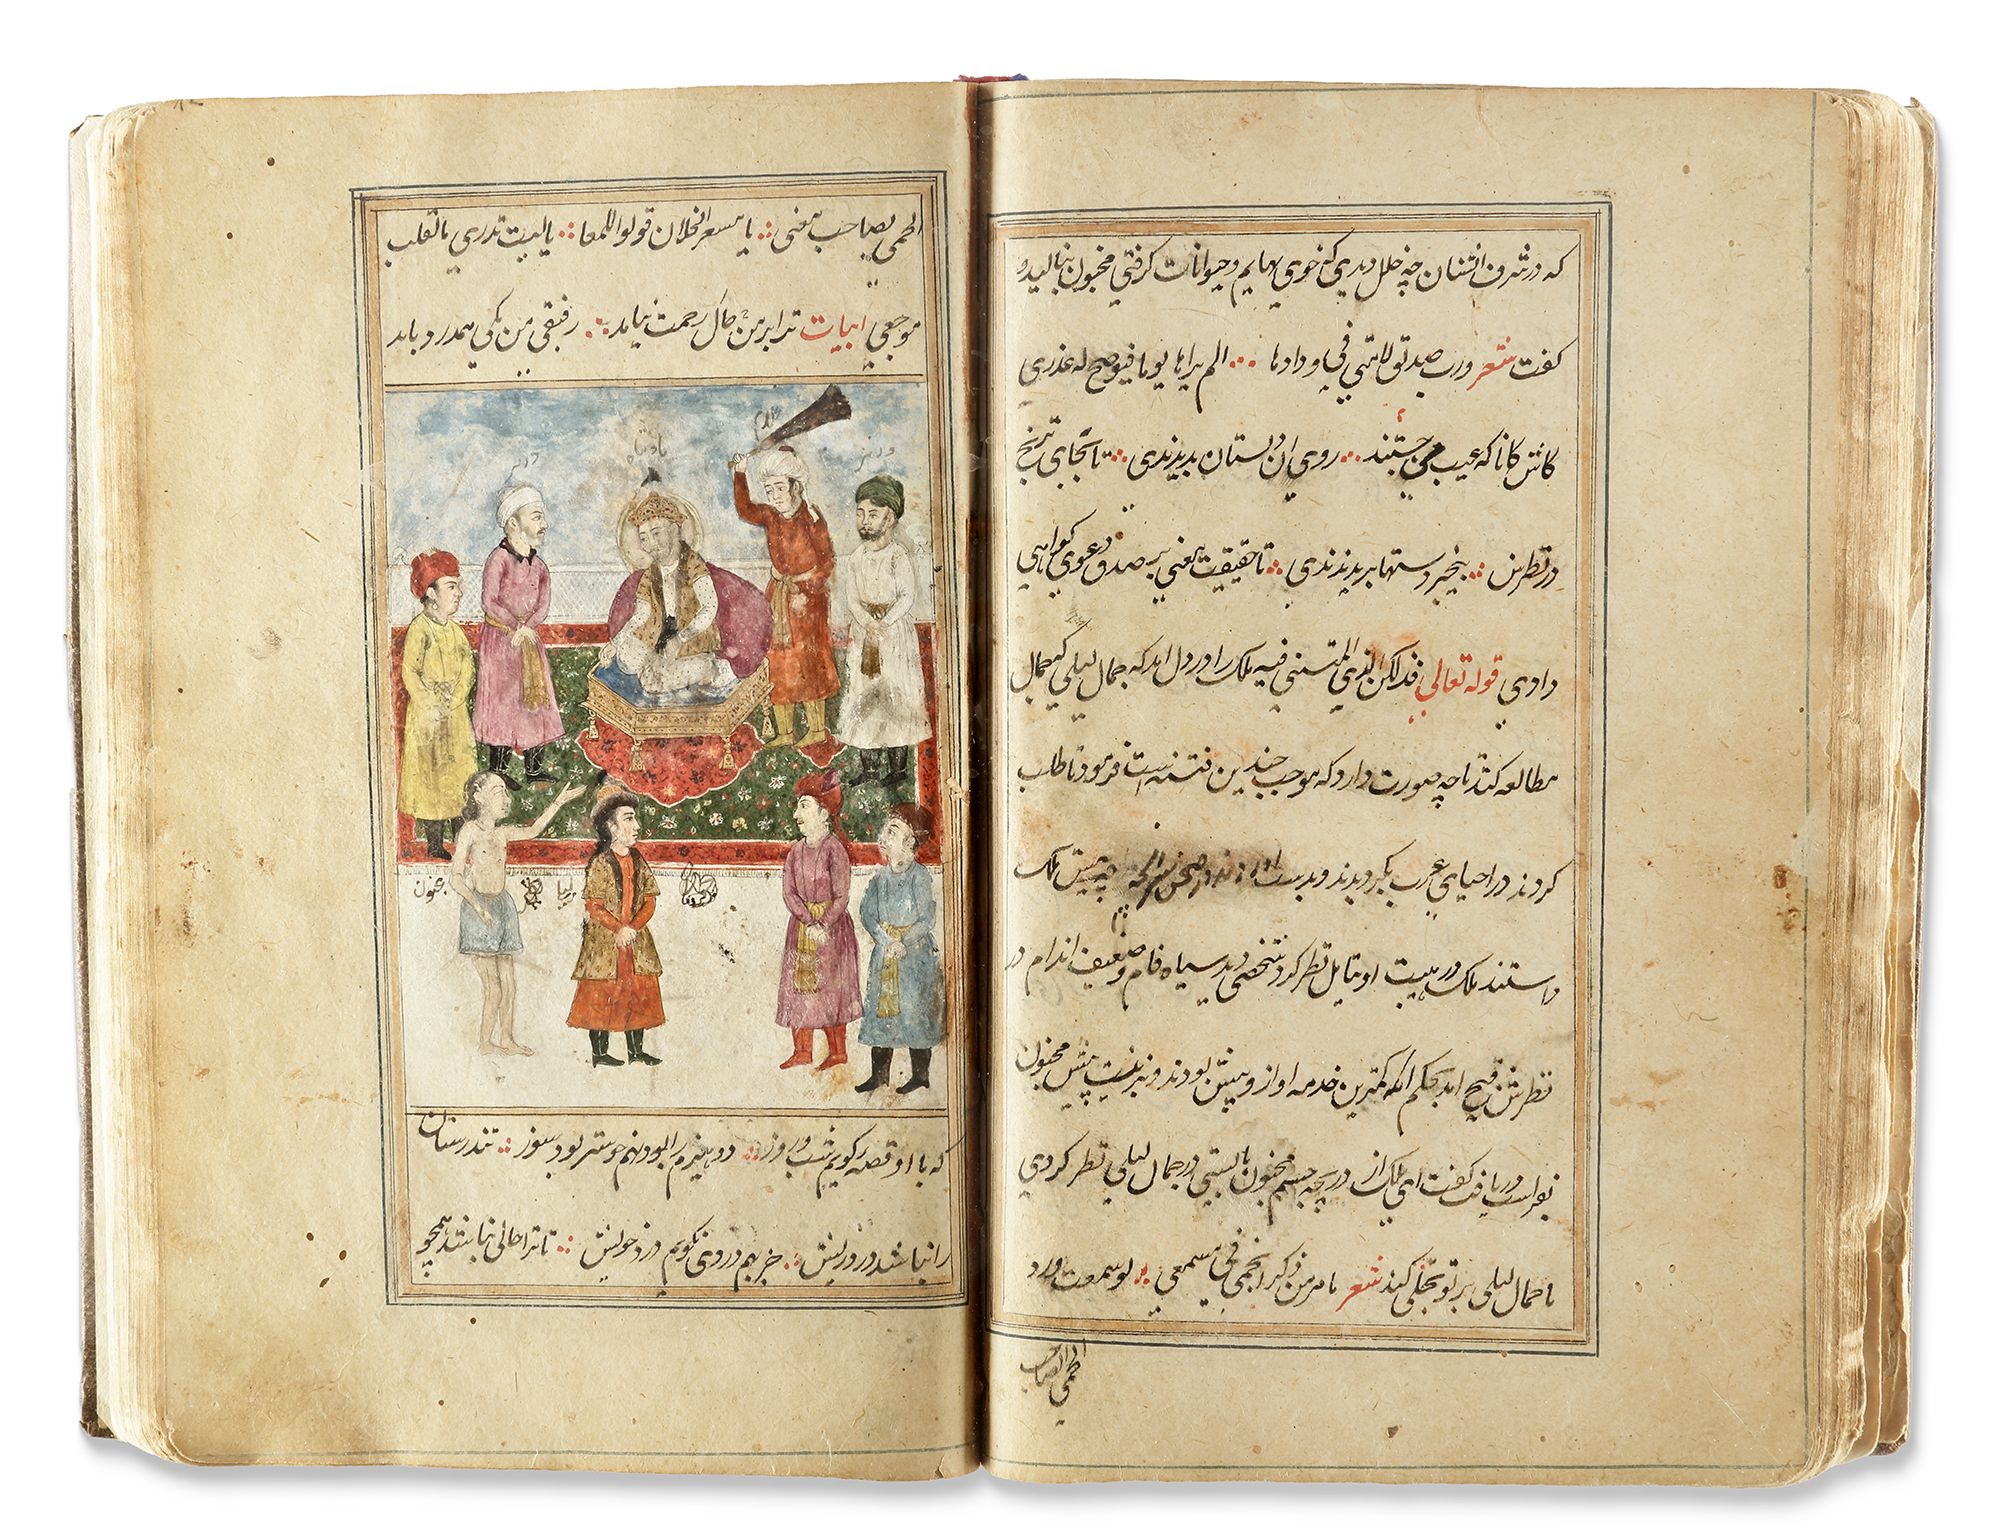 که در شرف انسان چه خلل دیدی که خوی بهایم و حیوانات گرفتی مجنون بنالید و
گفت شعر ورب صدیق لامنی فی ودادها الم یرها یوما فیوضح له عذری
کاش کانا که عیب من جستند روی آن دلستان بدیدندی تا بجای ترنج
در نظرش بیخبر دستها بریدندی تا حقیقت معنی بر صدق دعوی گواهی
دادی قوله تعالی فذلکن الذی لمتننی فیه ملک را در دل آمد که جمال لیلی
مطالعه کند تا چه صورت دارد که موجب چندین فتنه است فرمود تا طلب
کردند در احیای عرب بگردیدند و بدست آوردند در صحن سراچه پیش ملک
داشتند ملک در هیبت او تامل نظر کرد شخصی دید سیاه فام و ضعیف اندام در
نظرش قبیح آمد بحکم آنکه کمترین خدمه او از و پیش بودند و بزینت بیش مجنون
بفراست دریافت گفت ای ملک از دریچه چشم مجنون بایستی در جمال لیلی نظر کردی
تا جمال لیلی بر تو تجلی کند شعر ما مر من ذکر الحمی فی مسمعی لو سمعت ورد
الحمی لصاحت
الحمی بصاحب معنی یا معشر الخلان قولوا للمعا یا لیت تدری ما بقلب
موجعی ابیات ترا بر من حال رحمت نیاید رفیقی من یکی همدرد باید
وزیر
پادشاه
غلام
وزیر
مجنون
لیلی
که با او قصه گویم شب و روز دو هیزم را بهم خوشتر بود سوز تندرستان
را نباشد درد ریش جز بهم دردی نگویم درد خویش تا ترا حالی نباشد همچو